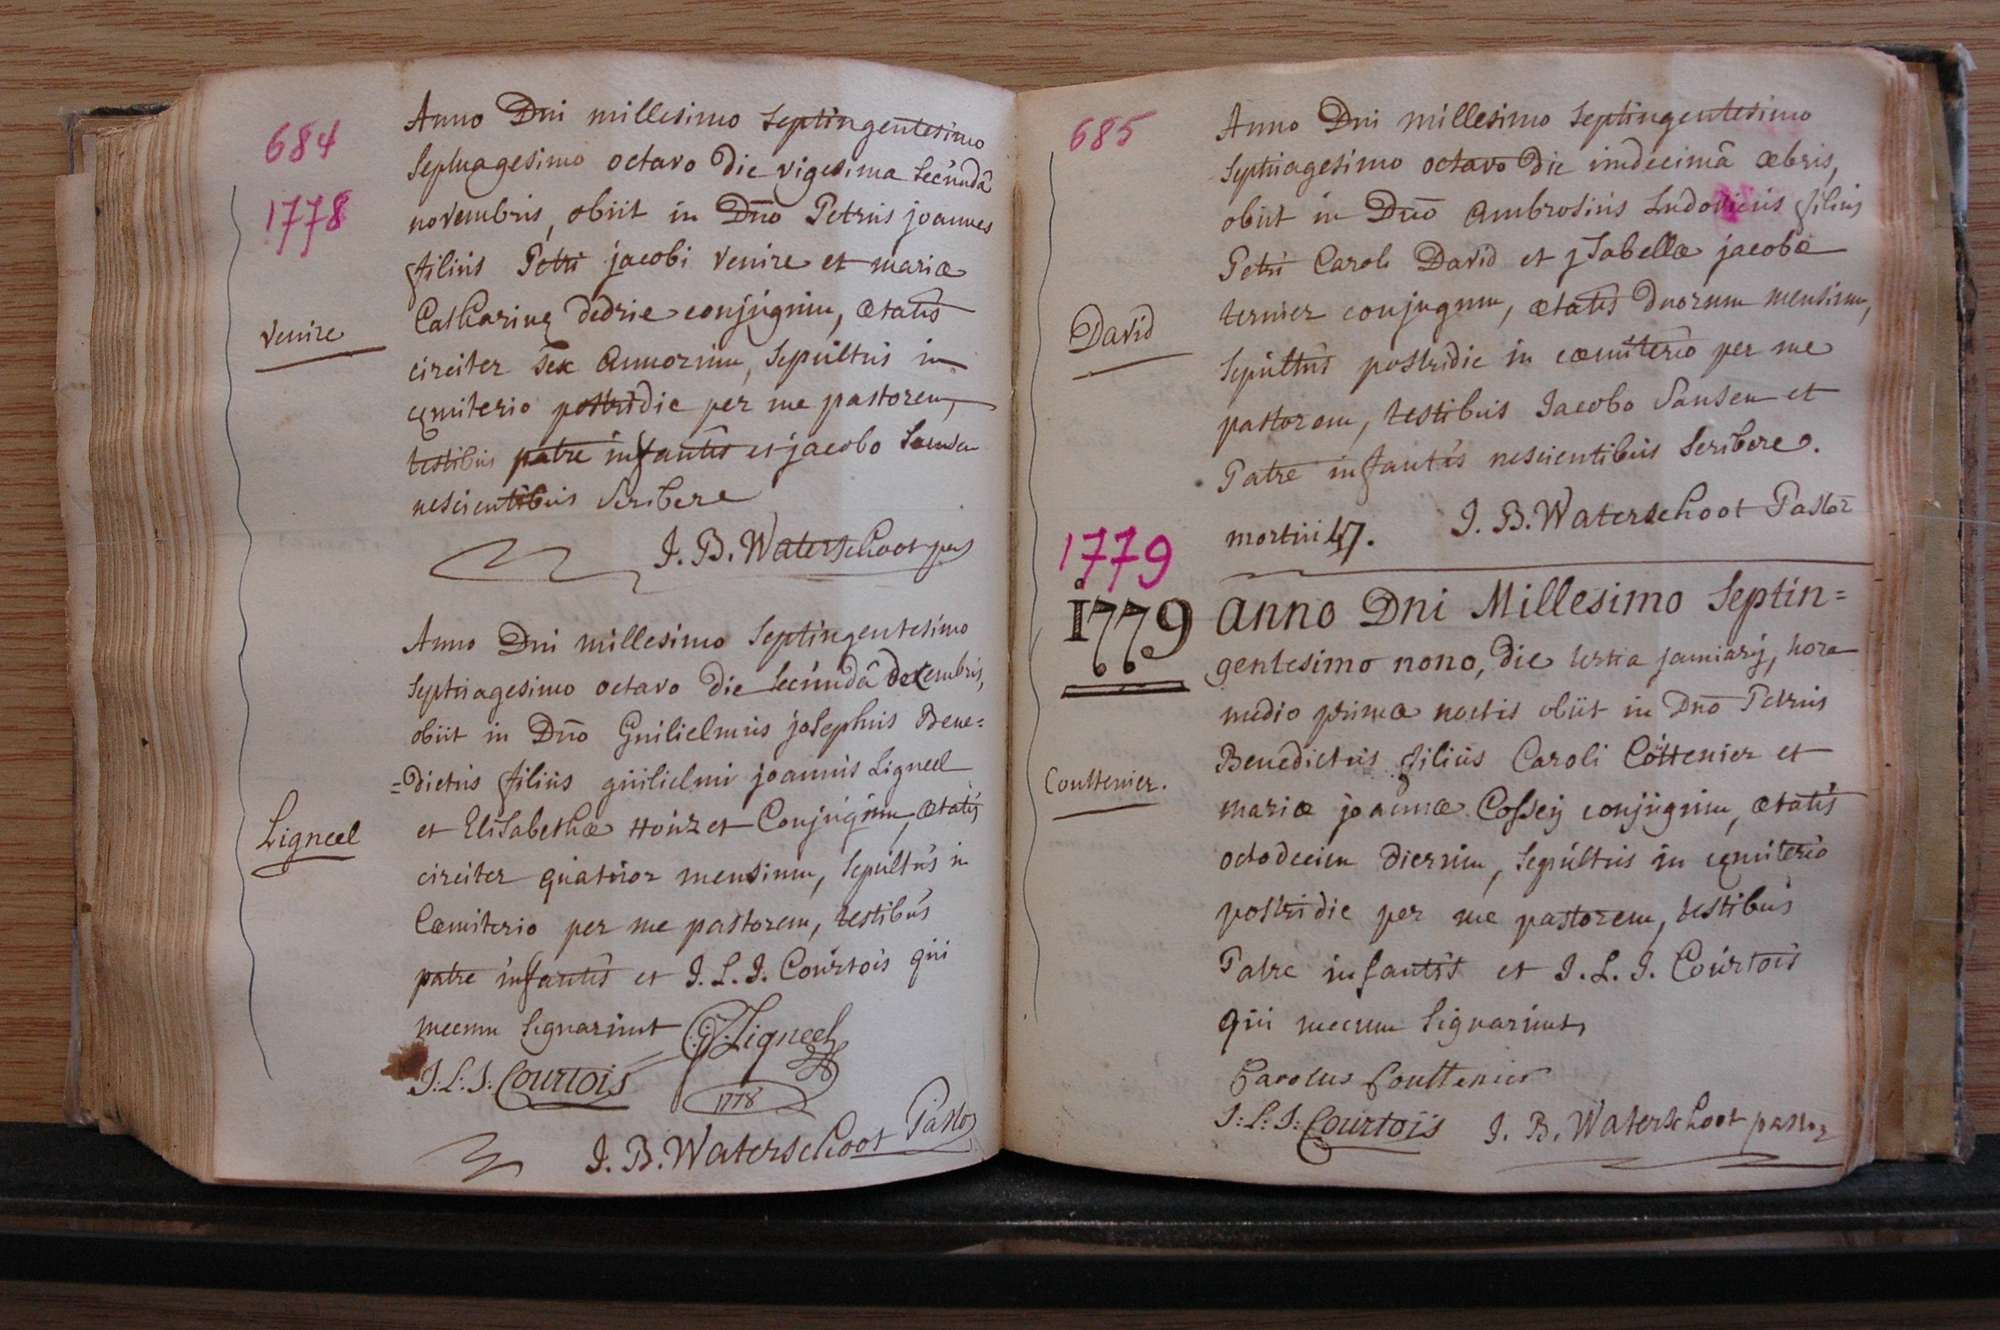 684
1778
Anno Dni millesimo Septingentesimo
Septuagesimo octavo die vigesima Secundâ
novembris, obiit in Dño Petrus joannes
filius Petri jacobi venire et mariæ
Catharinę dedrie conjugum, ætatis
venire
circiter sex annorum, Sepultus in
cęmiterio postridie per me pastorem,
testibus patre infantis et jacobo Sansen
nescientibus Scribere
J. B. Waterschoot pas
Anno Dni millesimo Septingentesimo
Septuagesimo octavo die Secundâ decembris,
obiit in Dño Guilielmus josephus Bene=
=dictus filius guilielmi joannis Ligneel
et Elisabethæ Houzet Conjugum, ætatis
Ligneel
circiter quatuor mensium, Sepultus in
Cæmiterio per me pastorem, testibus
patre infantis et J. L. J. Courtois qui
mecum Signarunt
G: J: Ligneel
J: L: J: Courtois
1778
J. B. Waterschoot Pastor
685
Anno Dni millesimo Septingentesimo
Septuagesimo octavo die undecimâ æbris,
obiit in Dño Ambrosius Ludovicus filius
Petri Caroli David et jsabellæ jacobæ
ternier conjugum, ætatis duorum mensium,
David
Sepultus postridie in cœmiterio per me
pastorem, testibus Jacobo Sansen et
Patre infantis nescientibus Scribere.
mortui 47.
J. B. Waterschoot Pastor
1779
1779
Anno Dni Millesimo Septin=
gentesimo nono, die tertia januarij, hora
medio primæ noctis obiit in Dño Petrus
Benedictus filius Caroli Cottenier et
Couttenier.
mariæ joannæ Cossey conjugum, ætatis
octodecim dierum, Sepultus in cęmiterio
postridie per me pastorem, testibus
Patre infantis et J. L. J. Courtois
qui mecum Signarunt,
Carolus Couttenier
J: L: J: Courtois
J. B. Waterschoot pastor